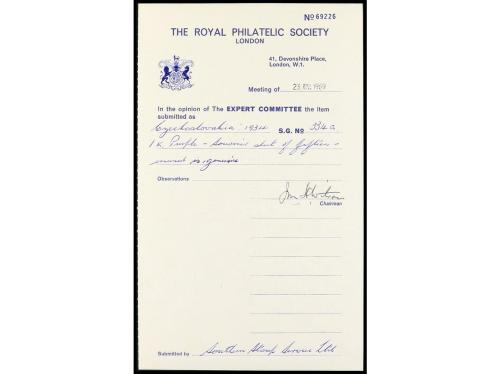 No 69226
THE ROYAL PHILATELIC SOCIETY
LONDON
41, Devonshire Place,
London, W.1.
Meeting of 1969
In the opinion of The EXPERT COMMITTEE the item
submitted as
Czechoslovakia 1934 S.G. No 334a
1k Purple - Souvenir sheet of fifteen -
is genuine
Observations
Chairman
Submitted by Southern Stamp Service Ltd